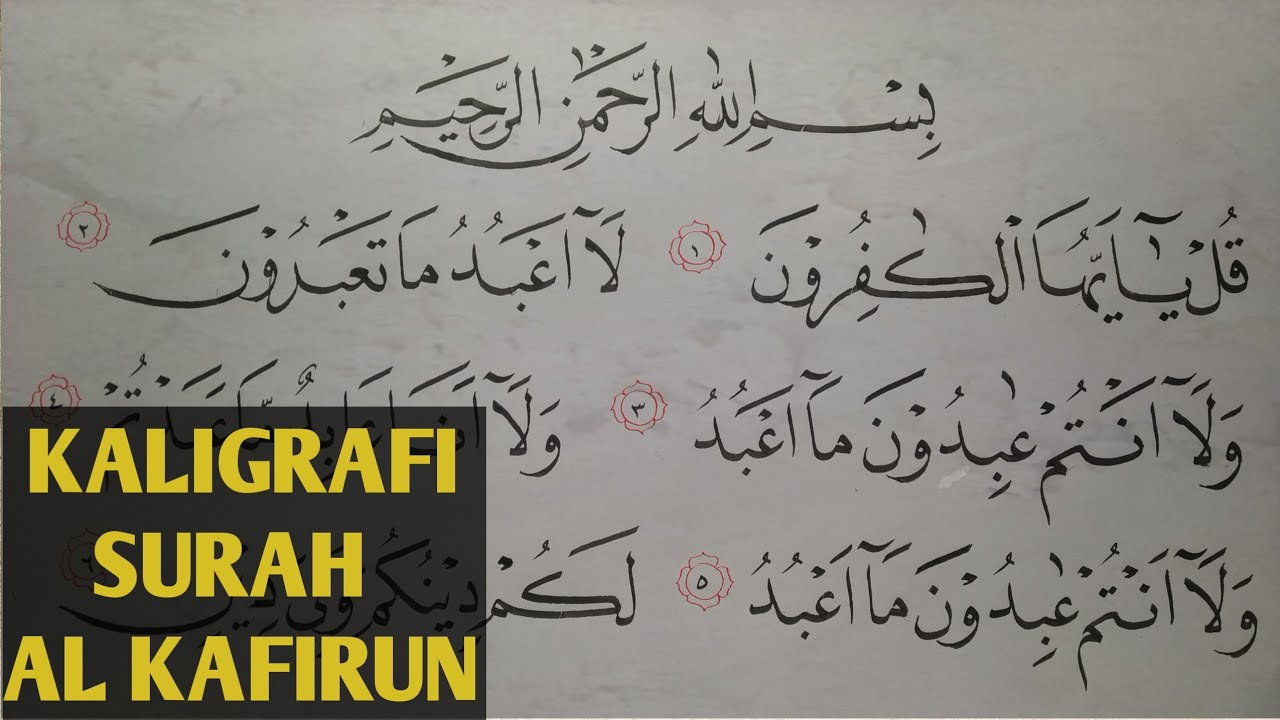 بِسْمِ اللهِ الرَّحْمٰنِ الرَّحِيْمِ
قُلْ يٰٓاَيُّهَا الْكٰفِرُوْنَ ١ لَآ اَعْبُدُ مَا تَعْبُدُوْنَ ٢
وَلَآ اَنْتُمْ عٰبِدُوْنَ مَآ اَعْبُدُ ٣ وَلَآ اَنَا۠ عَابِدٌ مَّا عَبَدْتُّمْ ٤
وَلَآ اَنْتُمْ عٰبِدُوْنَ مَآ اَعْبُدُ ٥ لَكُمْ دِيْنُكُمْ وَلِيَ دِيْنِ ٦
KALIGRAFI
SURAH
AL KAFIRUN